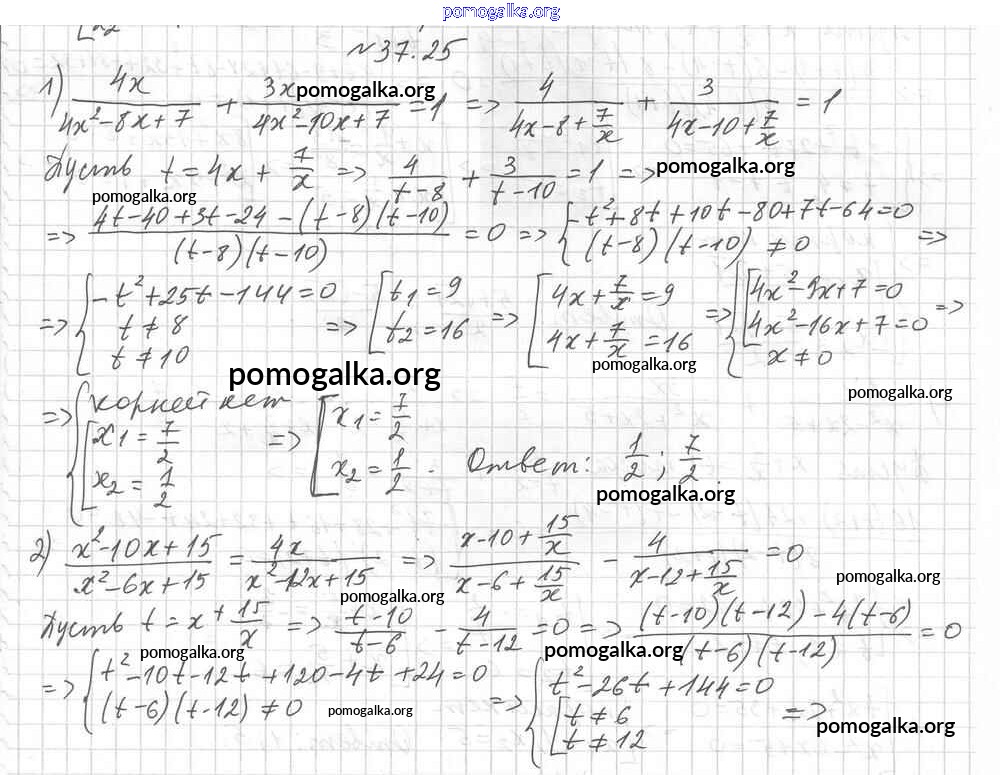 pomogalka.org
№37.25
1) 4x/(4x²-8x+7) + 3x/(4x²-10x+7) = 1 => 4/(4x-8+7/x) + 3/(4x-10+7/x) = 1
pomogalka.org
Пусть t = 4x + 7/x => 4/(t-8) + 3/(t-10) = 1 =>
pomogalka.org
pomogalka.org
=> (4t-40+3t-24-(t-8)(t-10))/((t-8)(t-10)) = 0 => { -t²+8t+10t-80+7t-64=0
(t-8)(t-10) ≠ 0 =>
=> { -t²+25t-144=0
t ≠ 8
t ≠ 10 => [ t₁=9
t₂=16 => [ 4x+7/x=9
4x+7/x=16 => { [ 4x²-9x+7=0
4x²-16x+7=0
x ≠ 0 =>
pomogalka.org
pomogalka.org
pomogalka.org
=> { корней нет
[ x₁ = 7/2
x₂ = 1/2 => [ x₁ = 7/2
x₂ = 1/2 . Ответ: 1/2; 7/2.
pomogalka.org
2) (x²-10x+15)/(x²-6x+15) = 4x/(x²-12x+15) => (x-10+15/x)/(x-6+15/x) - 4/(x-12+15/x) = 0
pomogalka.org
pomogalka.org
Пусть t = x + 15/x => (t-10)/(t-6) - 4/(t-12) = 0 => ((t-10)(t-12)-4(t-6))/((t-6)(t-12)) = 0
pomogalka.org
pomogalka.org
=> { t²-10t-12t+120-4t+24=0
(t-6)(t-12) ≠ 0 => { t²-26t+144=0
[ t ≠ 6
t ≠ 12 =>
pomogalka.org
pomogalka.org